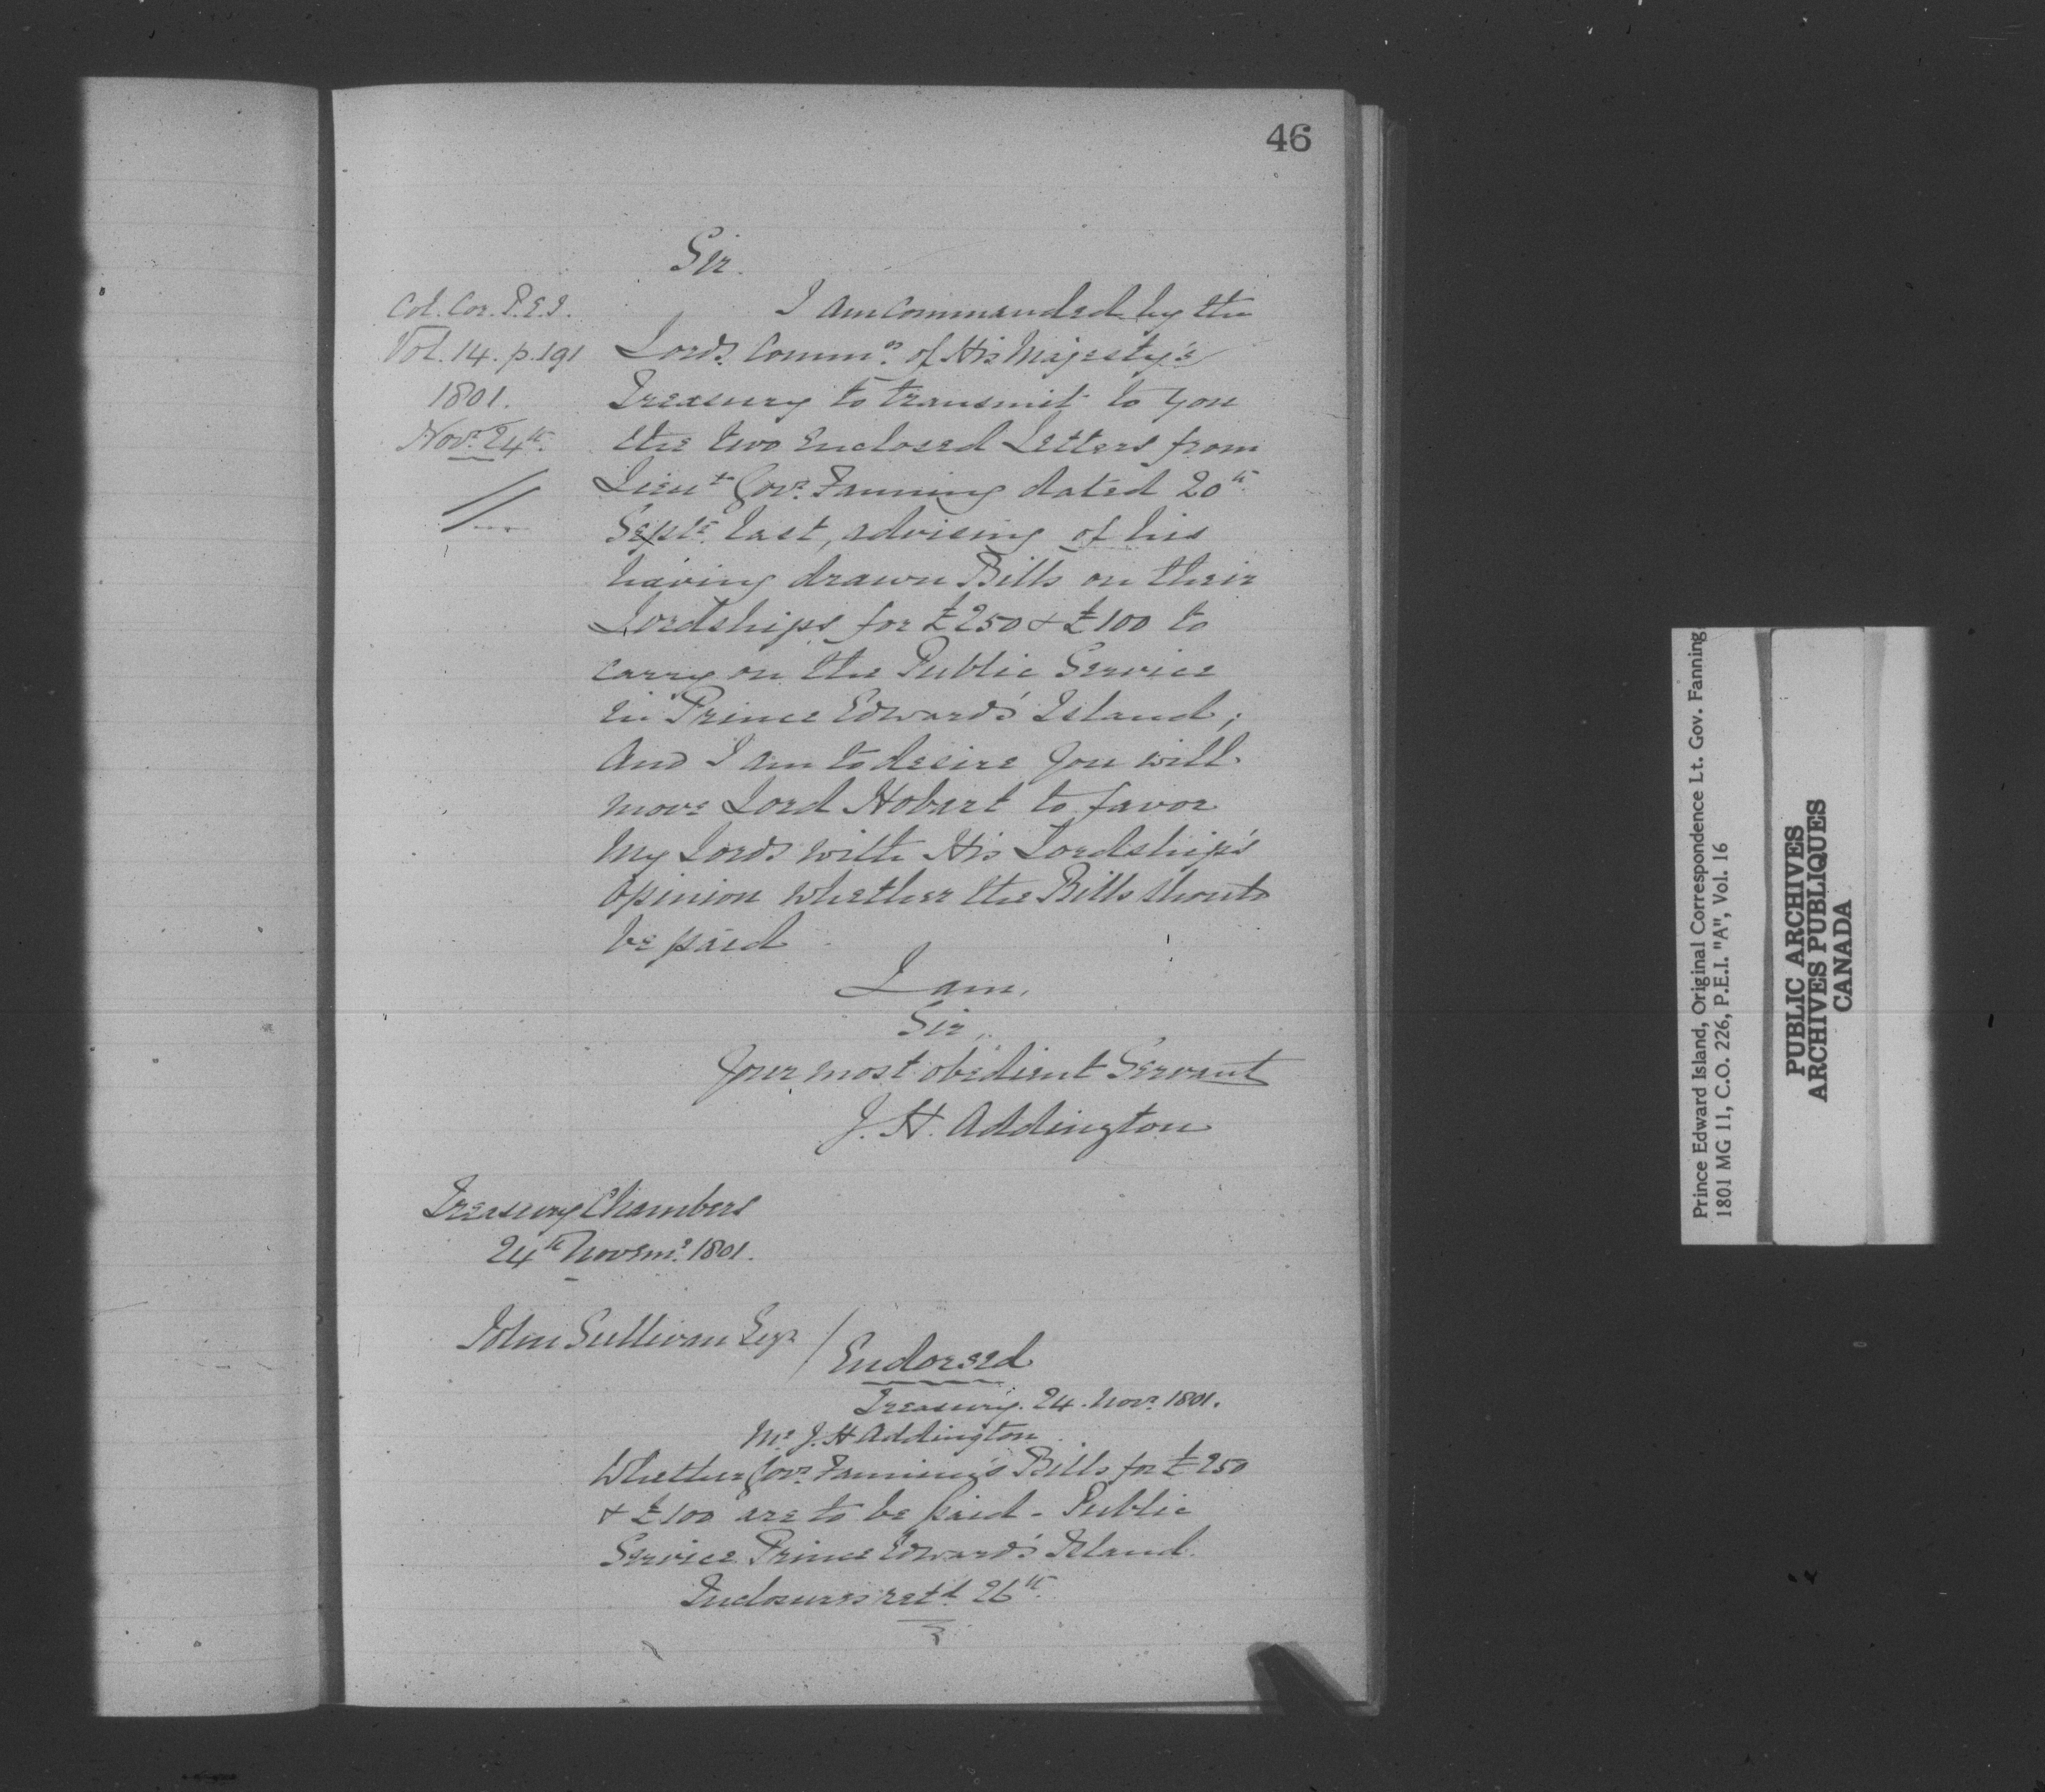 46
Sir.
Col. Cor. P.E.I.
Vol. 14. p. 191
1801.
Novr. 24th.
I am commanded by the
Lords Commrs. of His Majesty's
Treasury to transmit to you
the two enclosed Letters from
Lieut. Govr. Fanning dated 20th.
Septr. last, advising of his
having drawn Bills on their
Lordships for £250 & £100 to
carry on the Public Service
in Prince Edward's Island;
And I am to desire you will
move Lord Hobart to favor
My Lords with His Lordship's
opinion whether the Bills should
be paid
I am,
Sir,
Your most obedient Servant
J. H. Addington
Treasury Chambers
24th Novemr. 1801.
John Sullivan Esqr /
Endorsed
Treasury. 24. Novr. 1801.
Mr. J. H Addington
Whether Govr. Fanning's Bills for £250
& £100 are to be paid - Public
Service Prince Edward's Island.
Inclosures retd. 26th.
Prince Edward Island, Original Correspondence Lt. Gov. Fanning
1801 MG 11, C.O. 226, P.E.I. "A", Vol. 16
PUBLIC ARCHIVES
ARCHIVES PUBLIQUES
CANADA